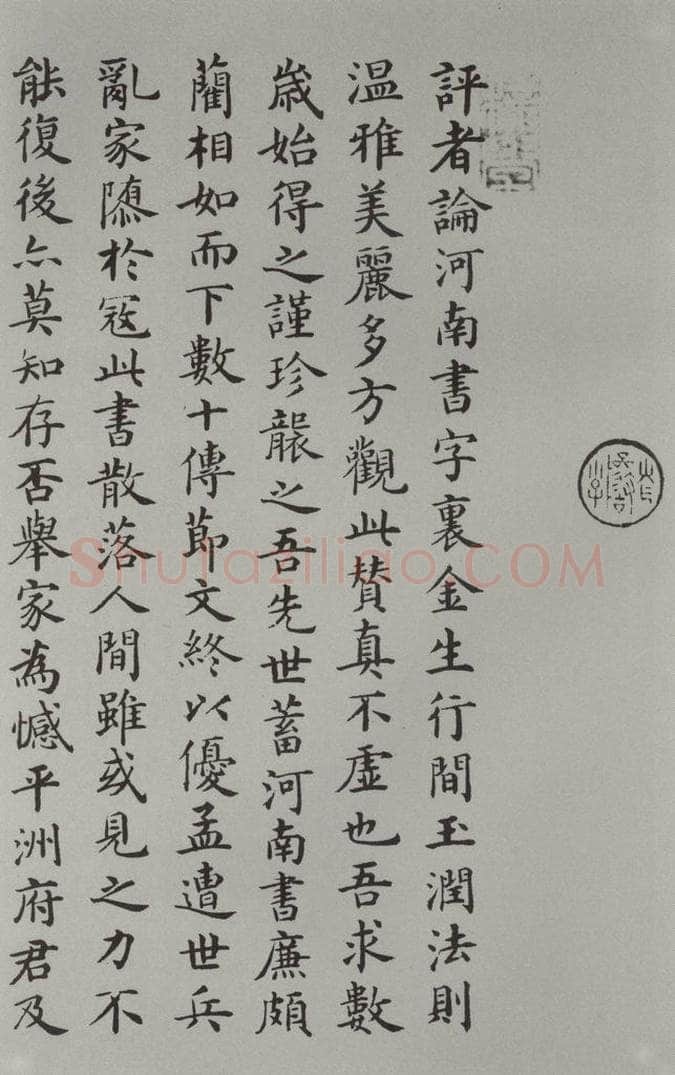 評者論河南書字裏金生行間玉潤法則
温雅美麗多方觀此賛真不虛也吾求數
歲始得之謹珍襲之吾先世蓄河南書廉頗
藺相如而下數十傳節文終以優孟遭世兵
亂家隳於寇此書散落人間雖或見之力不
能復後亦莫知存否舉家為憾平洲府君及
Shufaziliao.COM